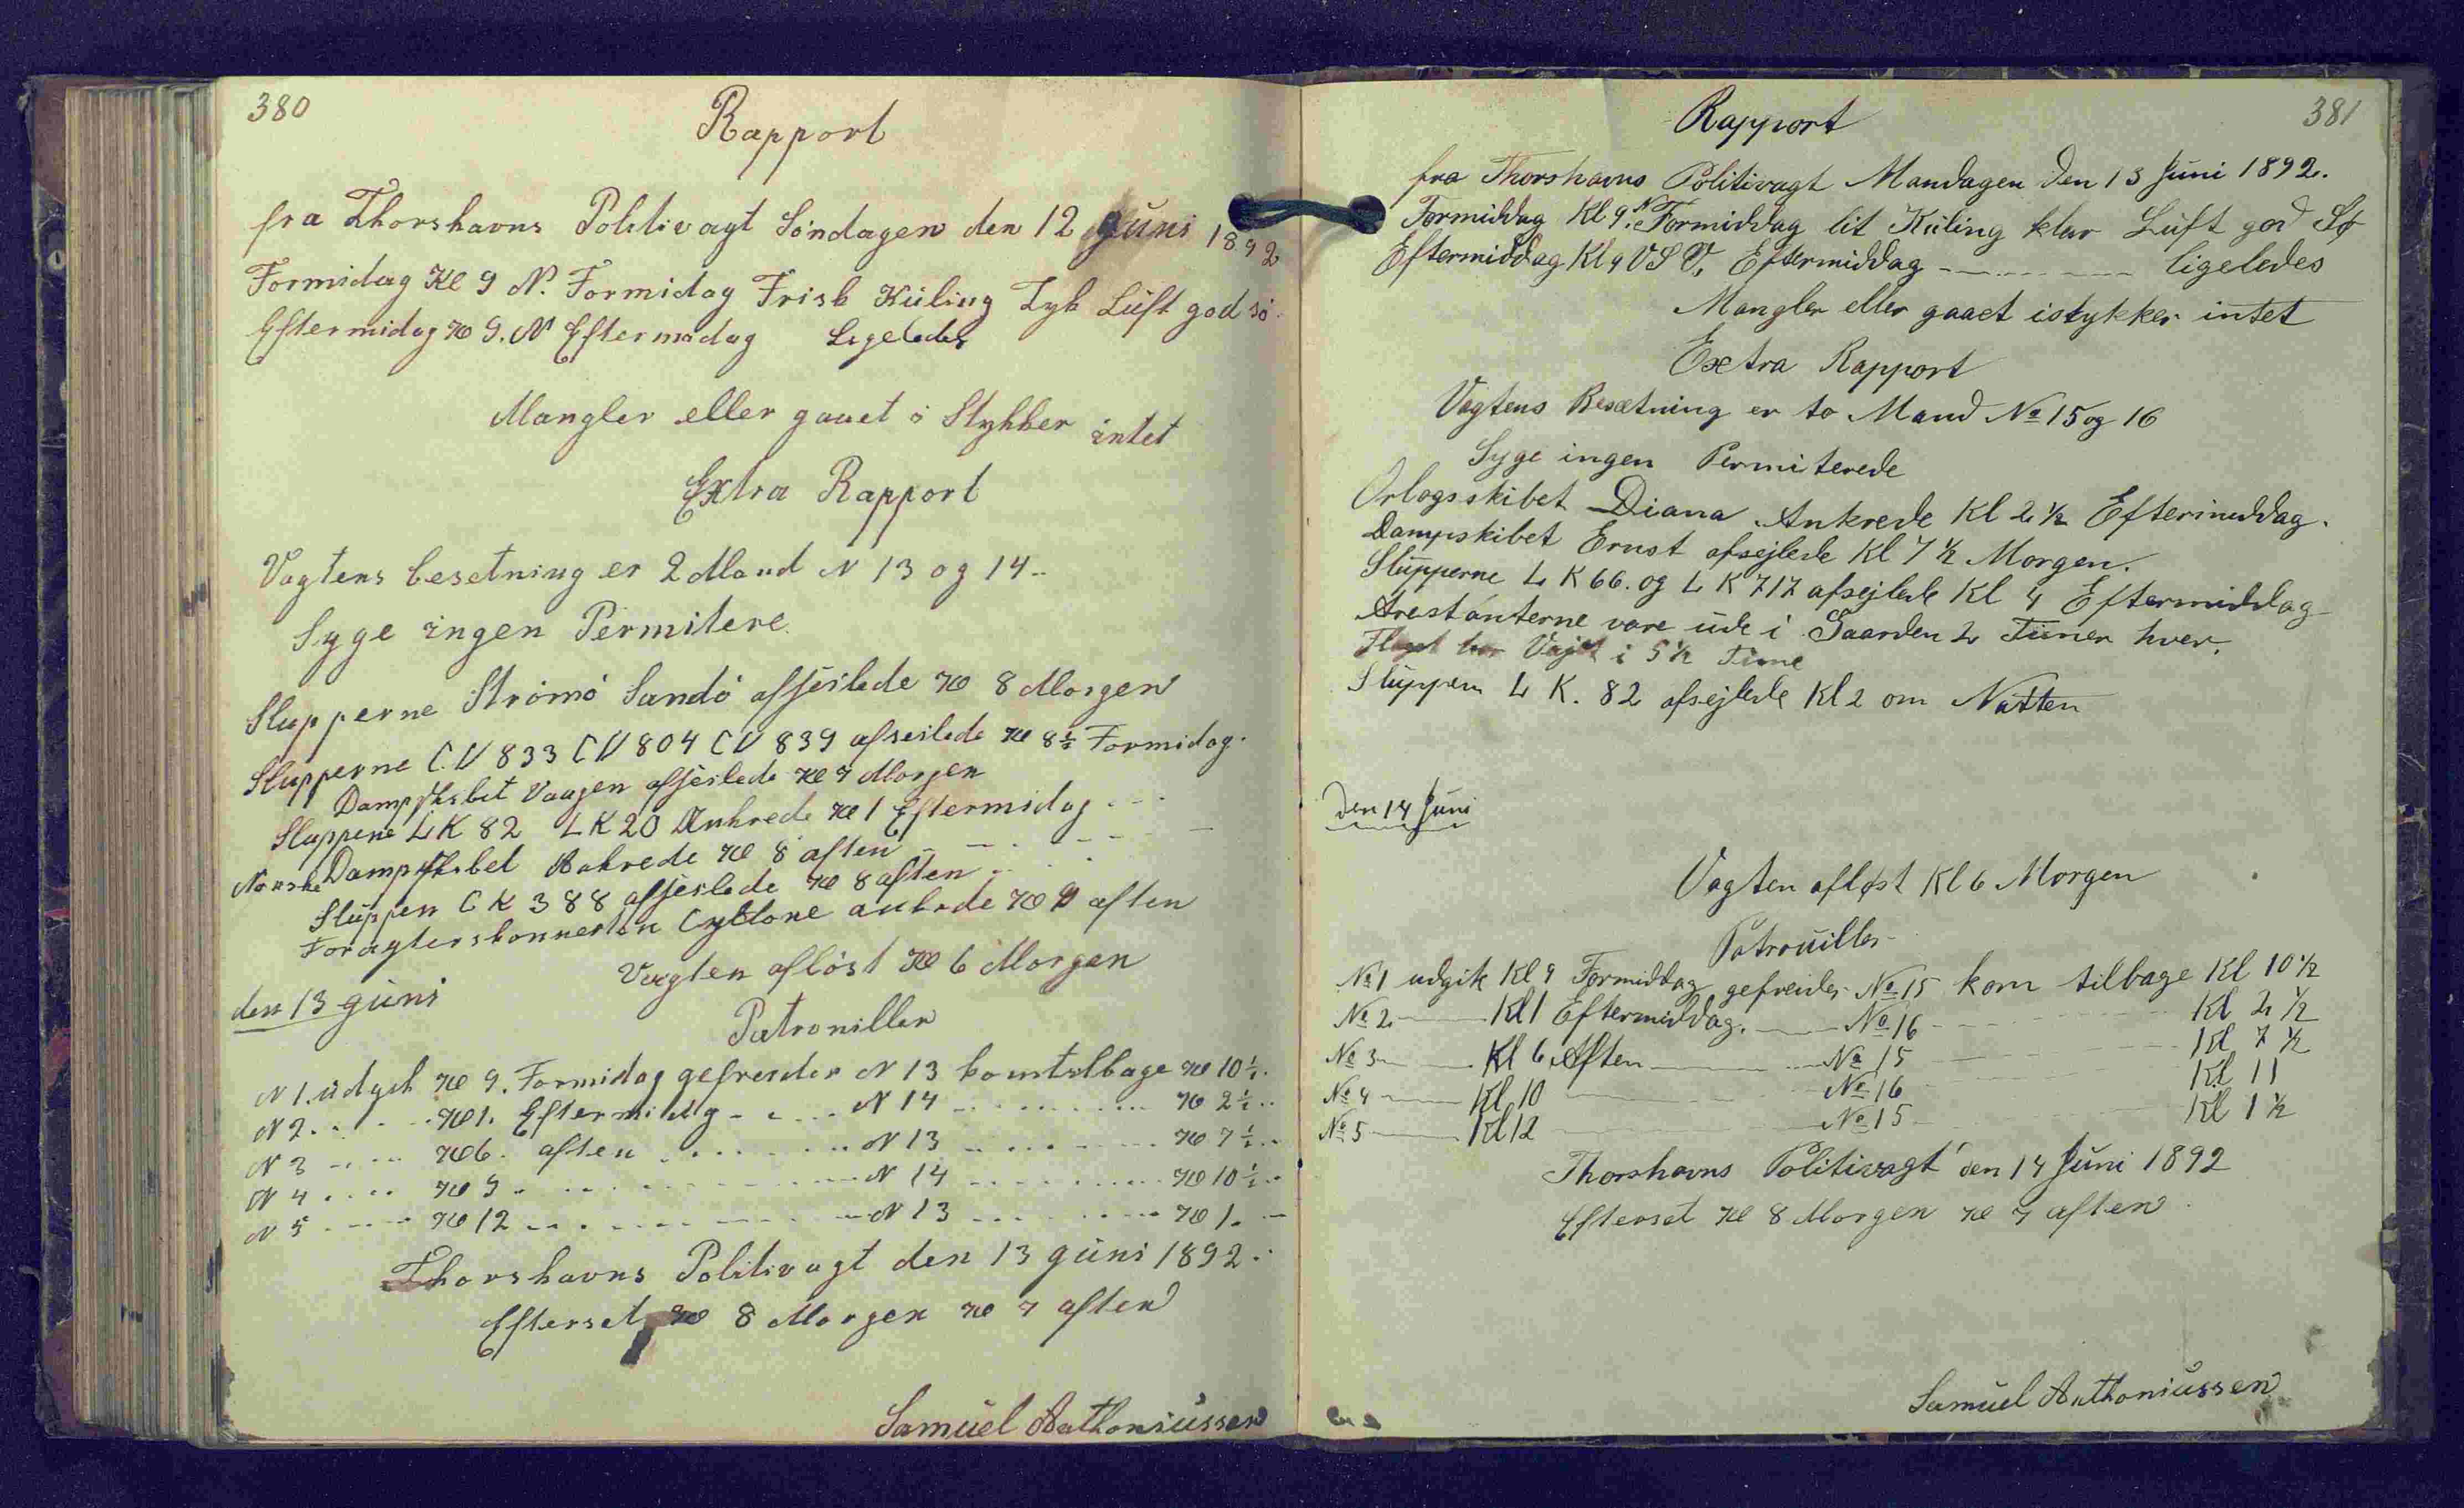 380
Rapport
fra Thorshavns Politivagt Söndagen den 12 Juni 1892
Formidag Kl 9 N. Formidag Frisk Küling Tyk Luft god sö
Eftermidag Kl 9. N Eftermidag Ligeledes
Mangler eller gaaet i Stykker intet
Extra Rapport
Vagtens besetning er 2 Mand N 13 og 14
Syge ingen Permitere
Slupperne Strömö Sandö afseilede Kl 8 Morgen
Slupperne CV 833 CV 804 CV 839 afseilede Kl 8½ Formidag.
Dampskibet Vaagen afseilede Kl 7 Morgen
Sluppene LK 82 LK 20 Ankrede Kl 1 Eftermidag
Norske Dampskibet Ankrede Kl 8 aften
Sluppen CK 388 afseilede Kl 8 aften
Foragterskonnerten Cyklone ankrde Kl aften
Vagten aflöst Kl 6 Morgen
den 13 Juni
Patroniller
N 1. udgik Kl 9. Formidag gefreider N 13 komtilbage Kl 10½.
N 2. Kl 1. Eftermidg N 14 Kl 2½
N 3 Kl 6. aften N 13 Kl 7½
N 4 Kl 9 N 14 Kl 10½
N 5 Kl 12 N 13 Kl 1.
Thorshavns Politivagt den 13 Juni 1892.
Efterset Kl 8 Morgen Kl 7 aften
Samuel Anthoniussen
381
Rapport
fra Thorshavns Politivagt Mandagen den 13 Juni 1892.
Formiddag Kl 9. N Formiddag lit Küling klar Luft god Sø
Eftermiddag Kl 9 VSV. Eftermiddag ligeledes
Mangler eller gaaet istykker intet
Extra Rapport
Vagtens Besætning er to Mand No 15 og 16
Syge ingen Permiterede
Orlogsskibet Diana Ankrede Kl 2½ Eftermiddag.
Dampskibet Ernst afsejlede Kl 7½ Morgen.
Slupperne LK 66. og LK 717 afsejlede Kl 4 Eftermiddag
Arestanterne vare ude i Gaarden 2 Timer hver.
Flaget har Vajet i 5½ Time
Sluppen LK. 82 afsejlede Kl 2 om Natten
den 14 Juni
Vagten afløst Kl 6 Morgen
Patrouiller
No 1 udgik Kl 9 Formiddag gefreider No 15 kom tilbage Kl 10½
No 2 Kl 1 Eftermiddag. No 16 Kl 2½
No 3 Kl 6 Aften No 15 Kl 7½
No 4 Kl 10 No 16 Kl 11
No 5 Kl 12 No 15 Kl 1½
Thorshavns Politivagt den 14 Juni 1892
Efterset Kl 8 Morgen Kl 7 aften
Samuel Anthoniussen